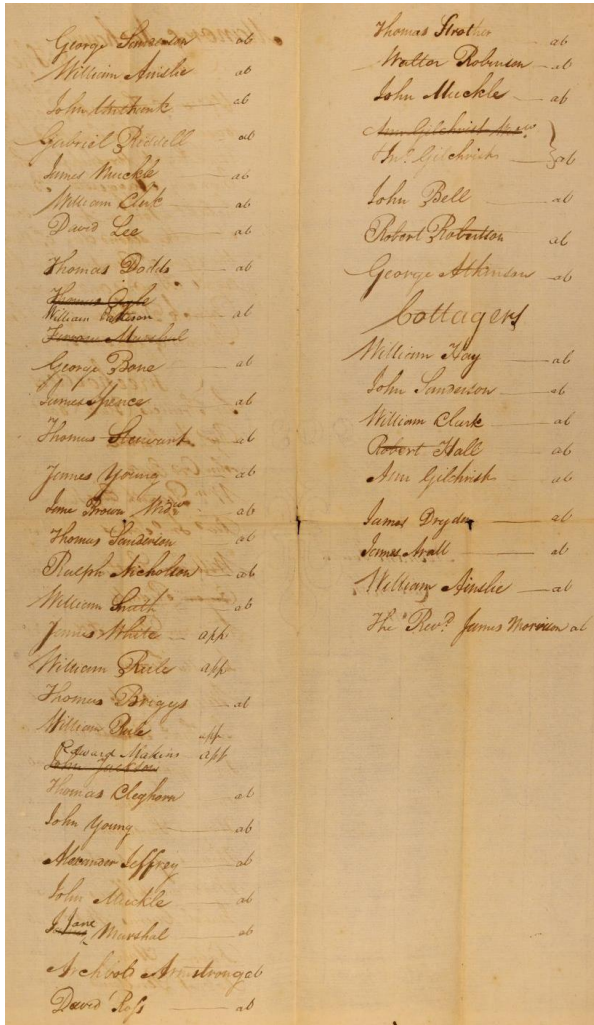 George Simerson ab
William Ainslie ab
John Unthank ab
Gabriel Reddell ab
James Muckle ab
William Clerk ab
David Lee ab
Thomas Dodds ab
Thomas Ogle
William Paterson ab
Marshal
George Bone ab
James Spence ab
Thomas Stewart ab
James Young ab
Jane Brown Widw ab
Thomas Sanderson ab
Ralph Nicholson ab
William Smith ab
James White app
William Rule app
Thomas Briggs ab
William Rule app
Edward Makins app
John Jackson
Thomas Cleghorn ab
John Young ab
Alexander Jeffrey ab
John Muckle ab
Jane Marshal ab
Archbold Armstrong ab
David Ross ab
Thomas Strother ab
Walter Robinson ab
John Muckle ab
Ann Gilchrist
Jno. Gilchrist ab
John Bell ab
Robert Robertson ab
George Atkinson ab
Cottagers
William Hay ab
John Sanderson ab
William Clark ab
Robert Hall ab
Ann Gilchrist ab
James Dryden ab
James Aratt ab
William Ainslie ab
The Revd. James Morrison ab